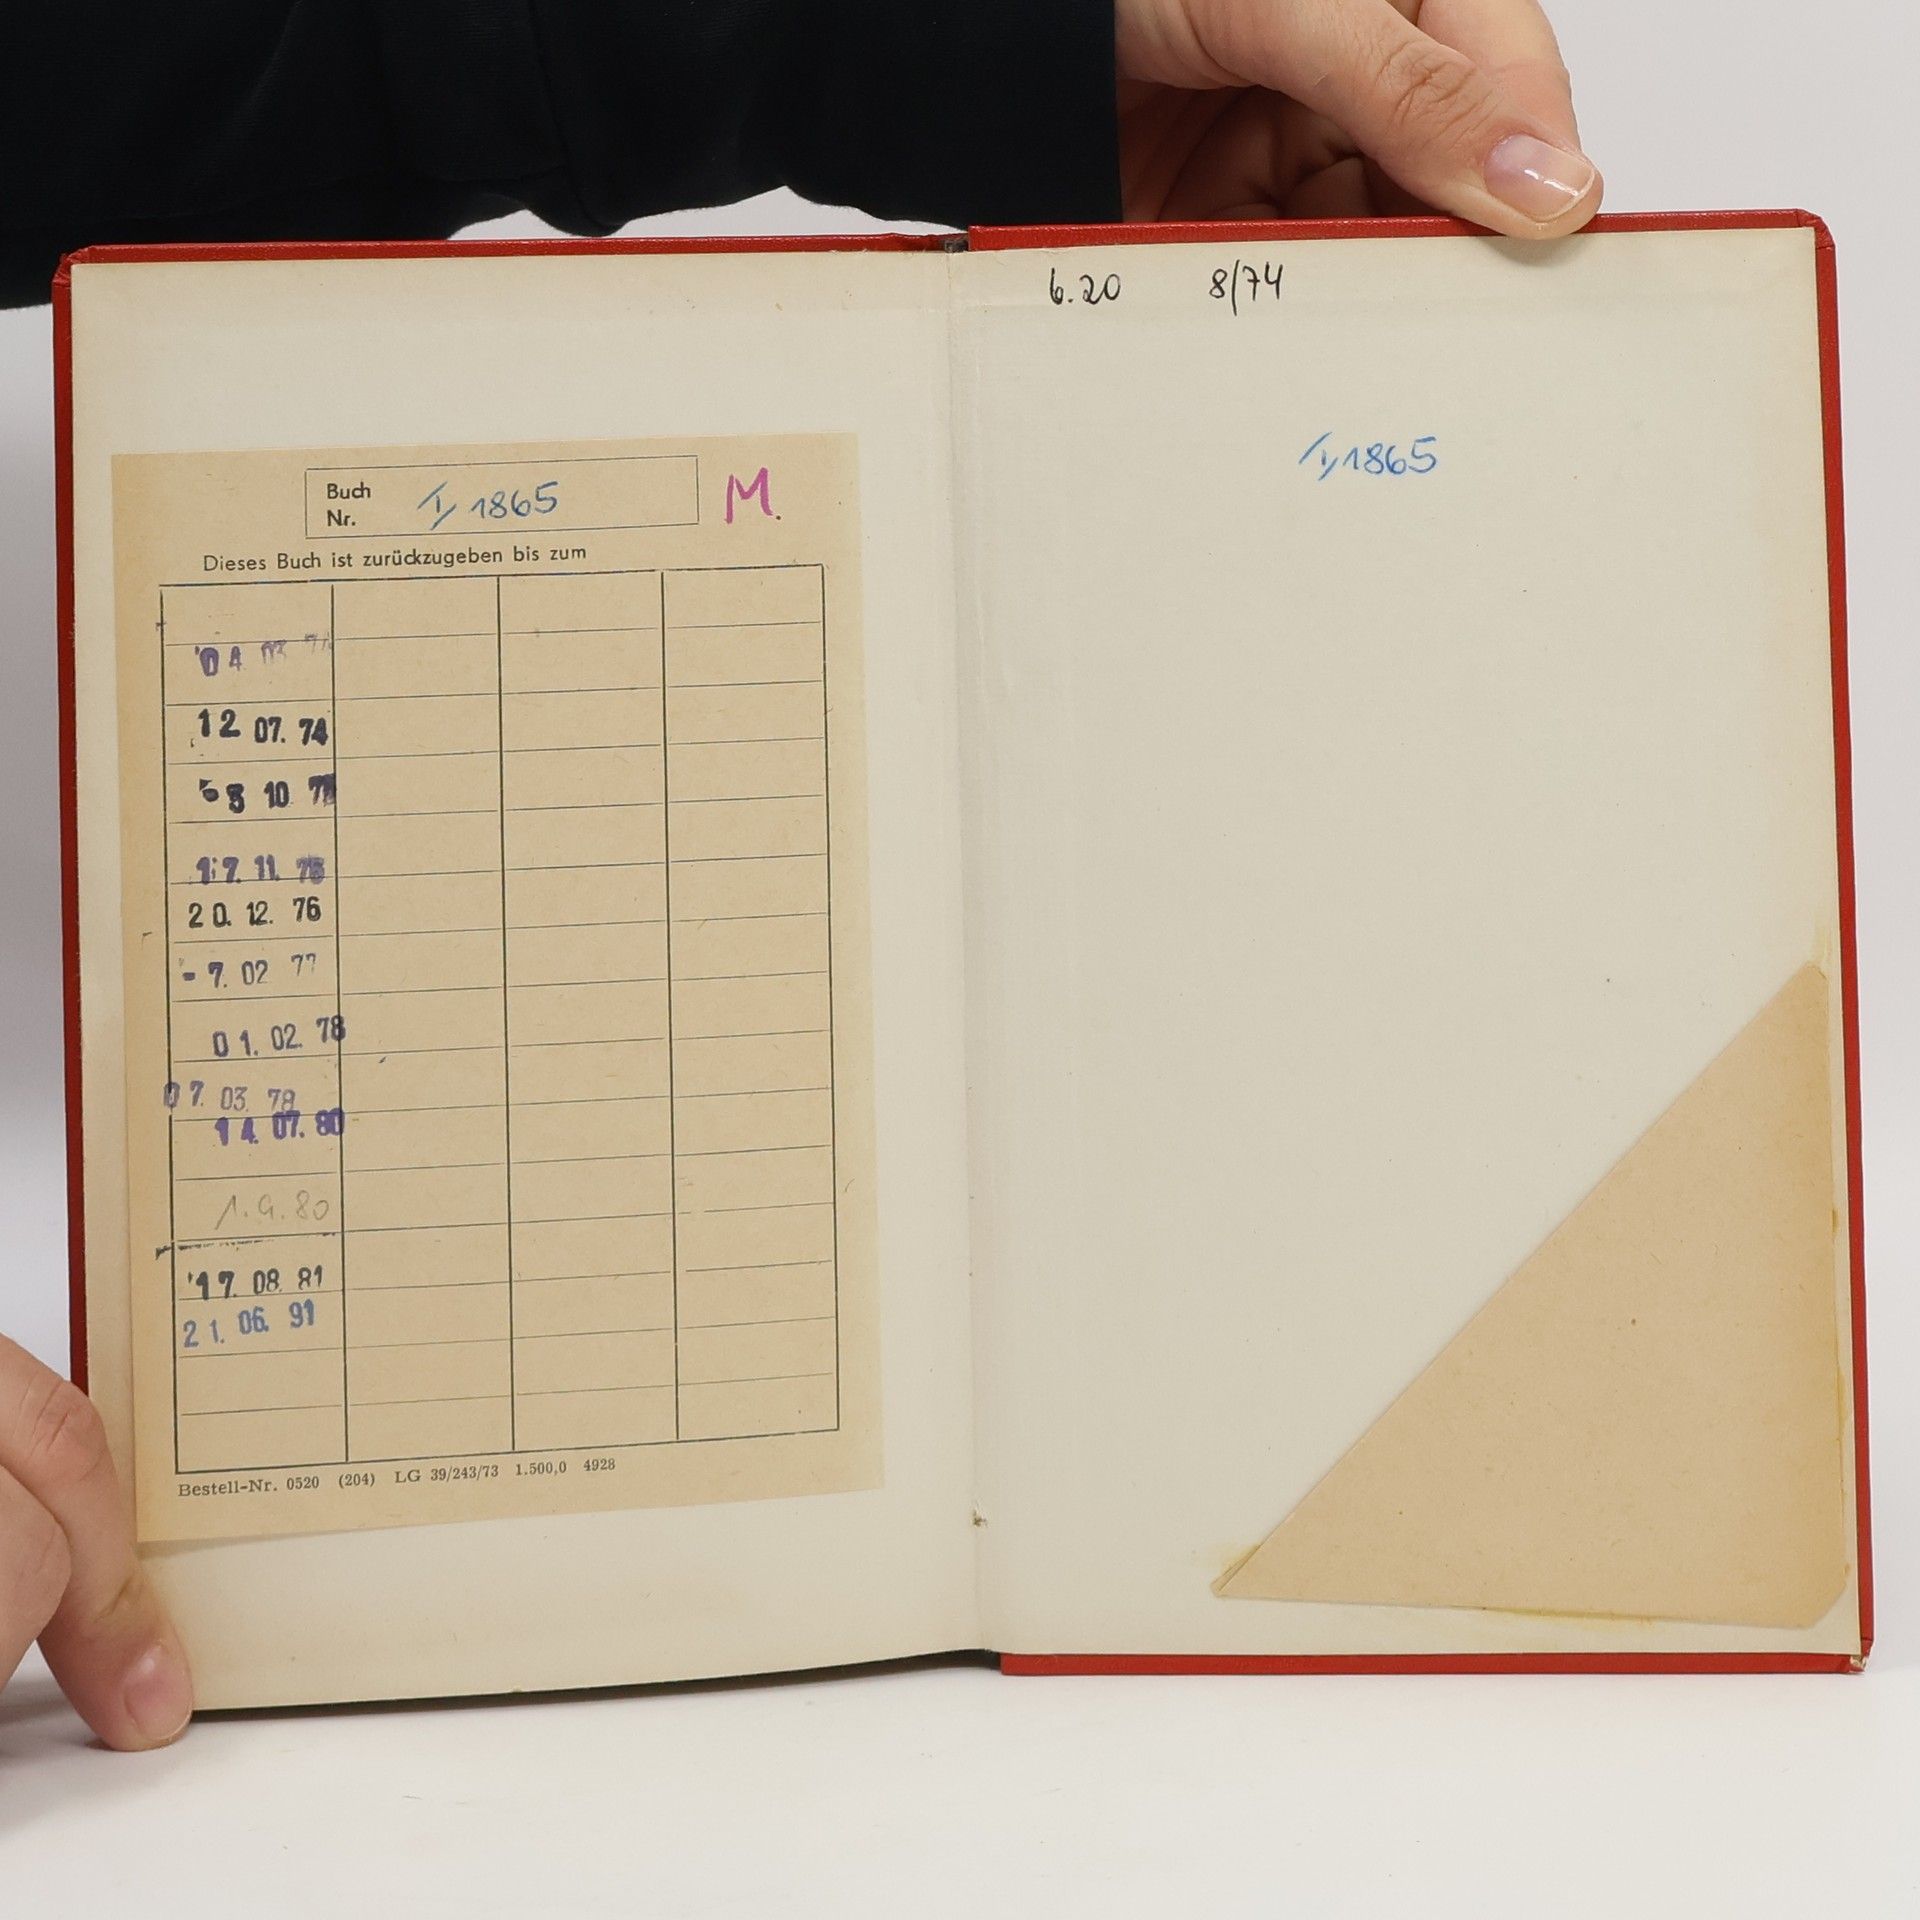 Buch
Nr. I/1865 M.
Dieses Buch ist zurückzugeben bis zum
04 03
12 07. 74
10
17. 11.
20. 12. 76
- 7. 02 77
01. 02. 78
07. 03. 78
14. 07. 80
1.9.80
17. 08. 81
21. 06. 91
Bestell-Nr. 0520 (204) LG 39/243/73 1.500,0 4928
6.20 8/74
I/1865